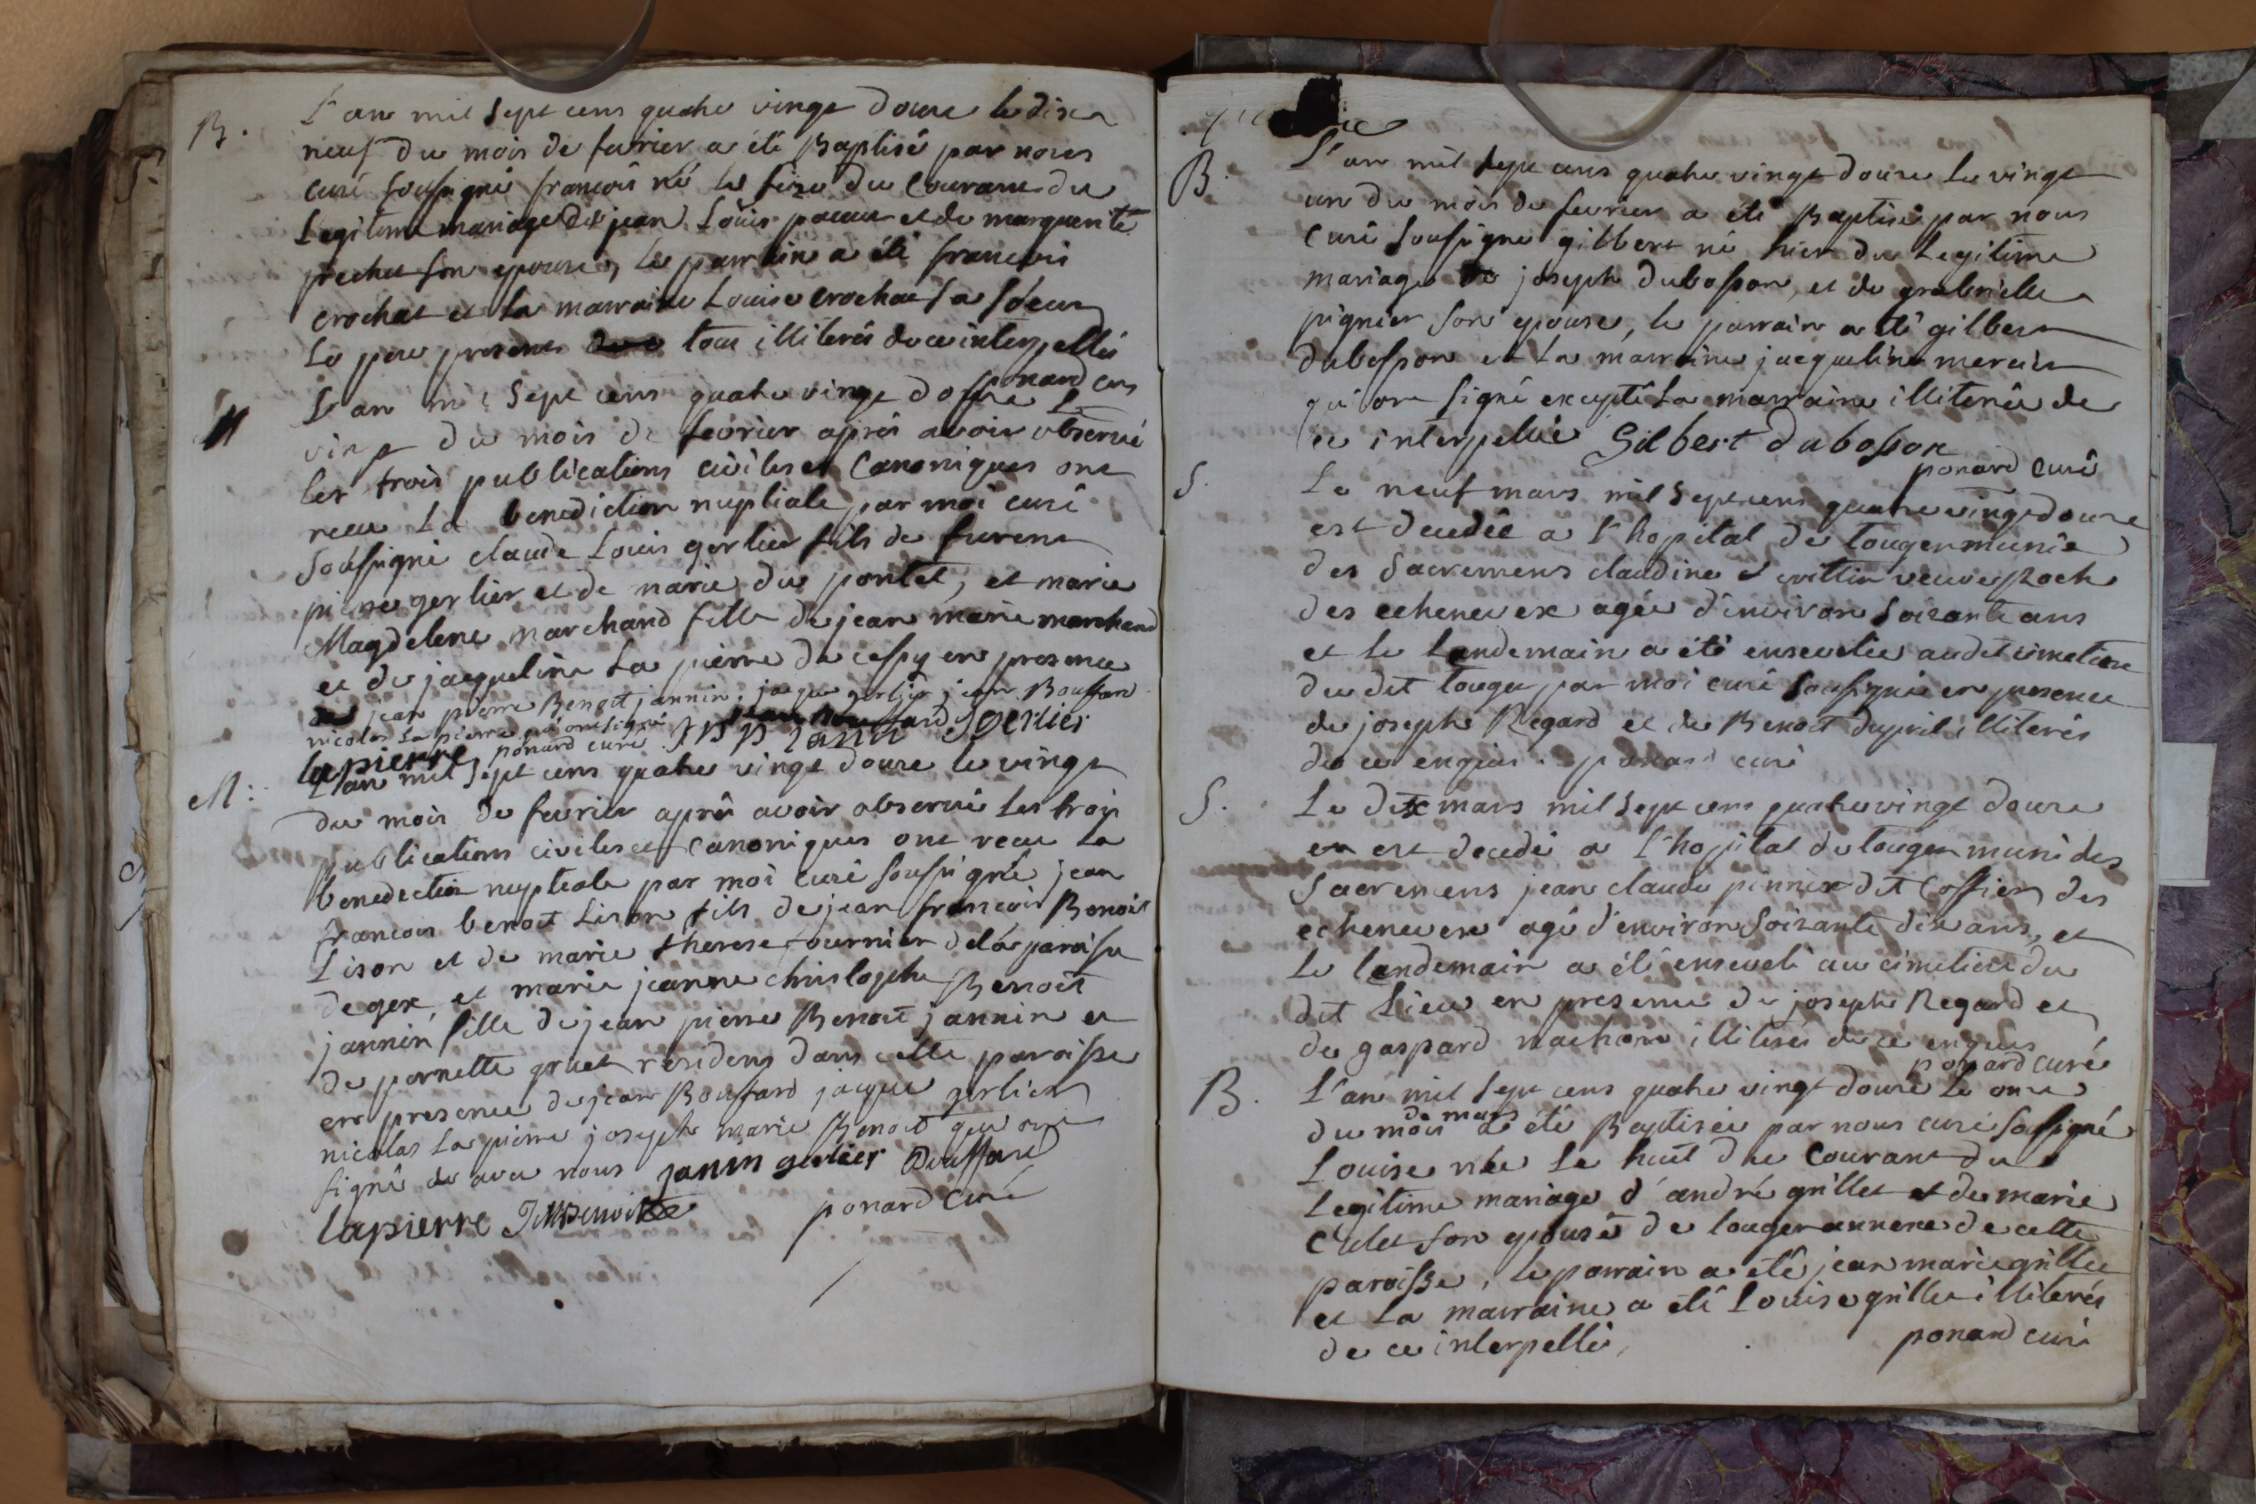 B. L'an mil sept cens quatre vingt douze le dix
neuf du mois de fevrier a été Baptisé par nous
curé soussigné françois né le seize du courant du
Legitime mariage de jean Louis et de marguerite
prechet son epouse, le parrain a été francois
crochat et la marraine Louise crochat sa soeur
Le pere present tous illiterés de ce interpellés
ponard curé
M L'an mil sept cens quatre vingt dousse Le
vingt du mois de fevrier aprés avoir observé
les trois publications civiles et Canoniques ont
recu la benediction nuptiale par moi curé
soussigné claude Louis gerlier fils de furent
pierre gerlier et de marie du pontet, et marie
Magdelene marchand fille de jean marie marchand
et de jacqueline La pierre de cessy en presence
de jean pierre Benoit jannin, jacque gerlier jean Bouffard
nicolas La pierre qui ont signé
lapierre ponard curé gerlier
M: L'an mil sept cens quatre vingt douze le vingt
du mois de fevrier aprés avoir observé Les trois
publications civiles et Canoniques ont recu La
benediction nuptiale par moi curé soussigné jean
francois benoit Lison fils de jean francois Benoit
Lison et de marie therese fournier de la paroisse
de gex, et marie jeanne christophe Benoit
jannin fille de jean pierre Benoit jannin et
de pernette gruet residens dans cette paroisse
en presence de jean Bouffard jacque gerlier
nicolas La pierre joseph marie Benoit qui ont
signé de avec nous janin gerlier Bouffard
lapierre JMBenoit ponard curé
B. L'an mil sept cens quatre vingt douze Le vingt
un du mois de fevrier a été Baptisé par nous
Curé soussigné gilbert né hier du Legitime
mariage de joseph dubosson, et de grabrielle
pignier son epouse, le parrain a été gilbert
dubosson et La marraine jacqueline mercier
qui ont signé excepté La marraine illiterée de
ce interpellée Gilbert dubosson
ponard curé
S. Le neuf mars mil sept cens quatre vingt douze
est decedée a l'hopital de tougin munie
des Sacremens claudine veuve Roch
des echenevex agée d'environ soixante ans
et le Lendemain a été ensevelie au dit cimetiere
du dit tougin par moi curé soussigné en presence
de joseph Regard et de Benoit dupuil illiterés
de ce enquis. ponard curé
S. Le dix mars mil sept cens quatre vingt douze
en est decedé a L'hopital de tougin muni des
Sacremens jean claude perrier dit Coffier des
echenevex agé d'environ soixante dix ans, et
Le Lendemain a été enseveli au cimetiere du
dit Lieu en presence de joseph Regard et
de gaspard vuachon illiterés de ce enquis
ponard curé
B. L'an mil sept cens quatre vingt douze Le onze
du mois de mars a été Baptisée par nous curé soussigné
Louise née Le huit du Courant du
Legitime mariage d'andré grillet et de marie
son epouse de tougin annexe de cette
paroisse, le parrain a été jean marie grillet
et La marraine a été Louise grillet illiterés
de ce interpellé, ponard curé